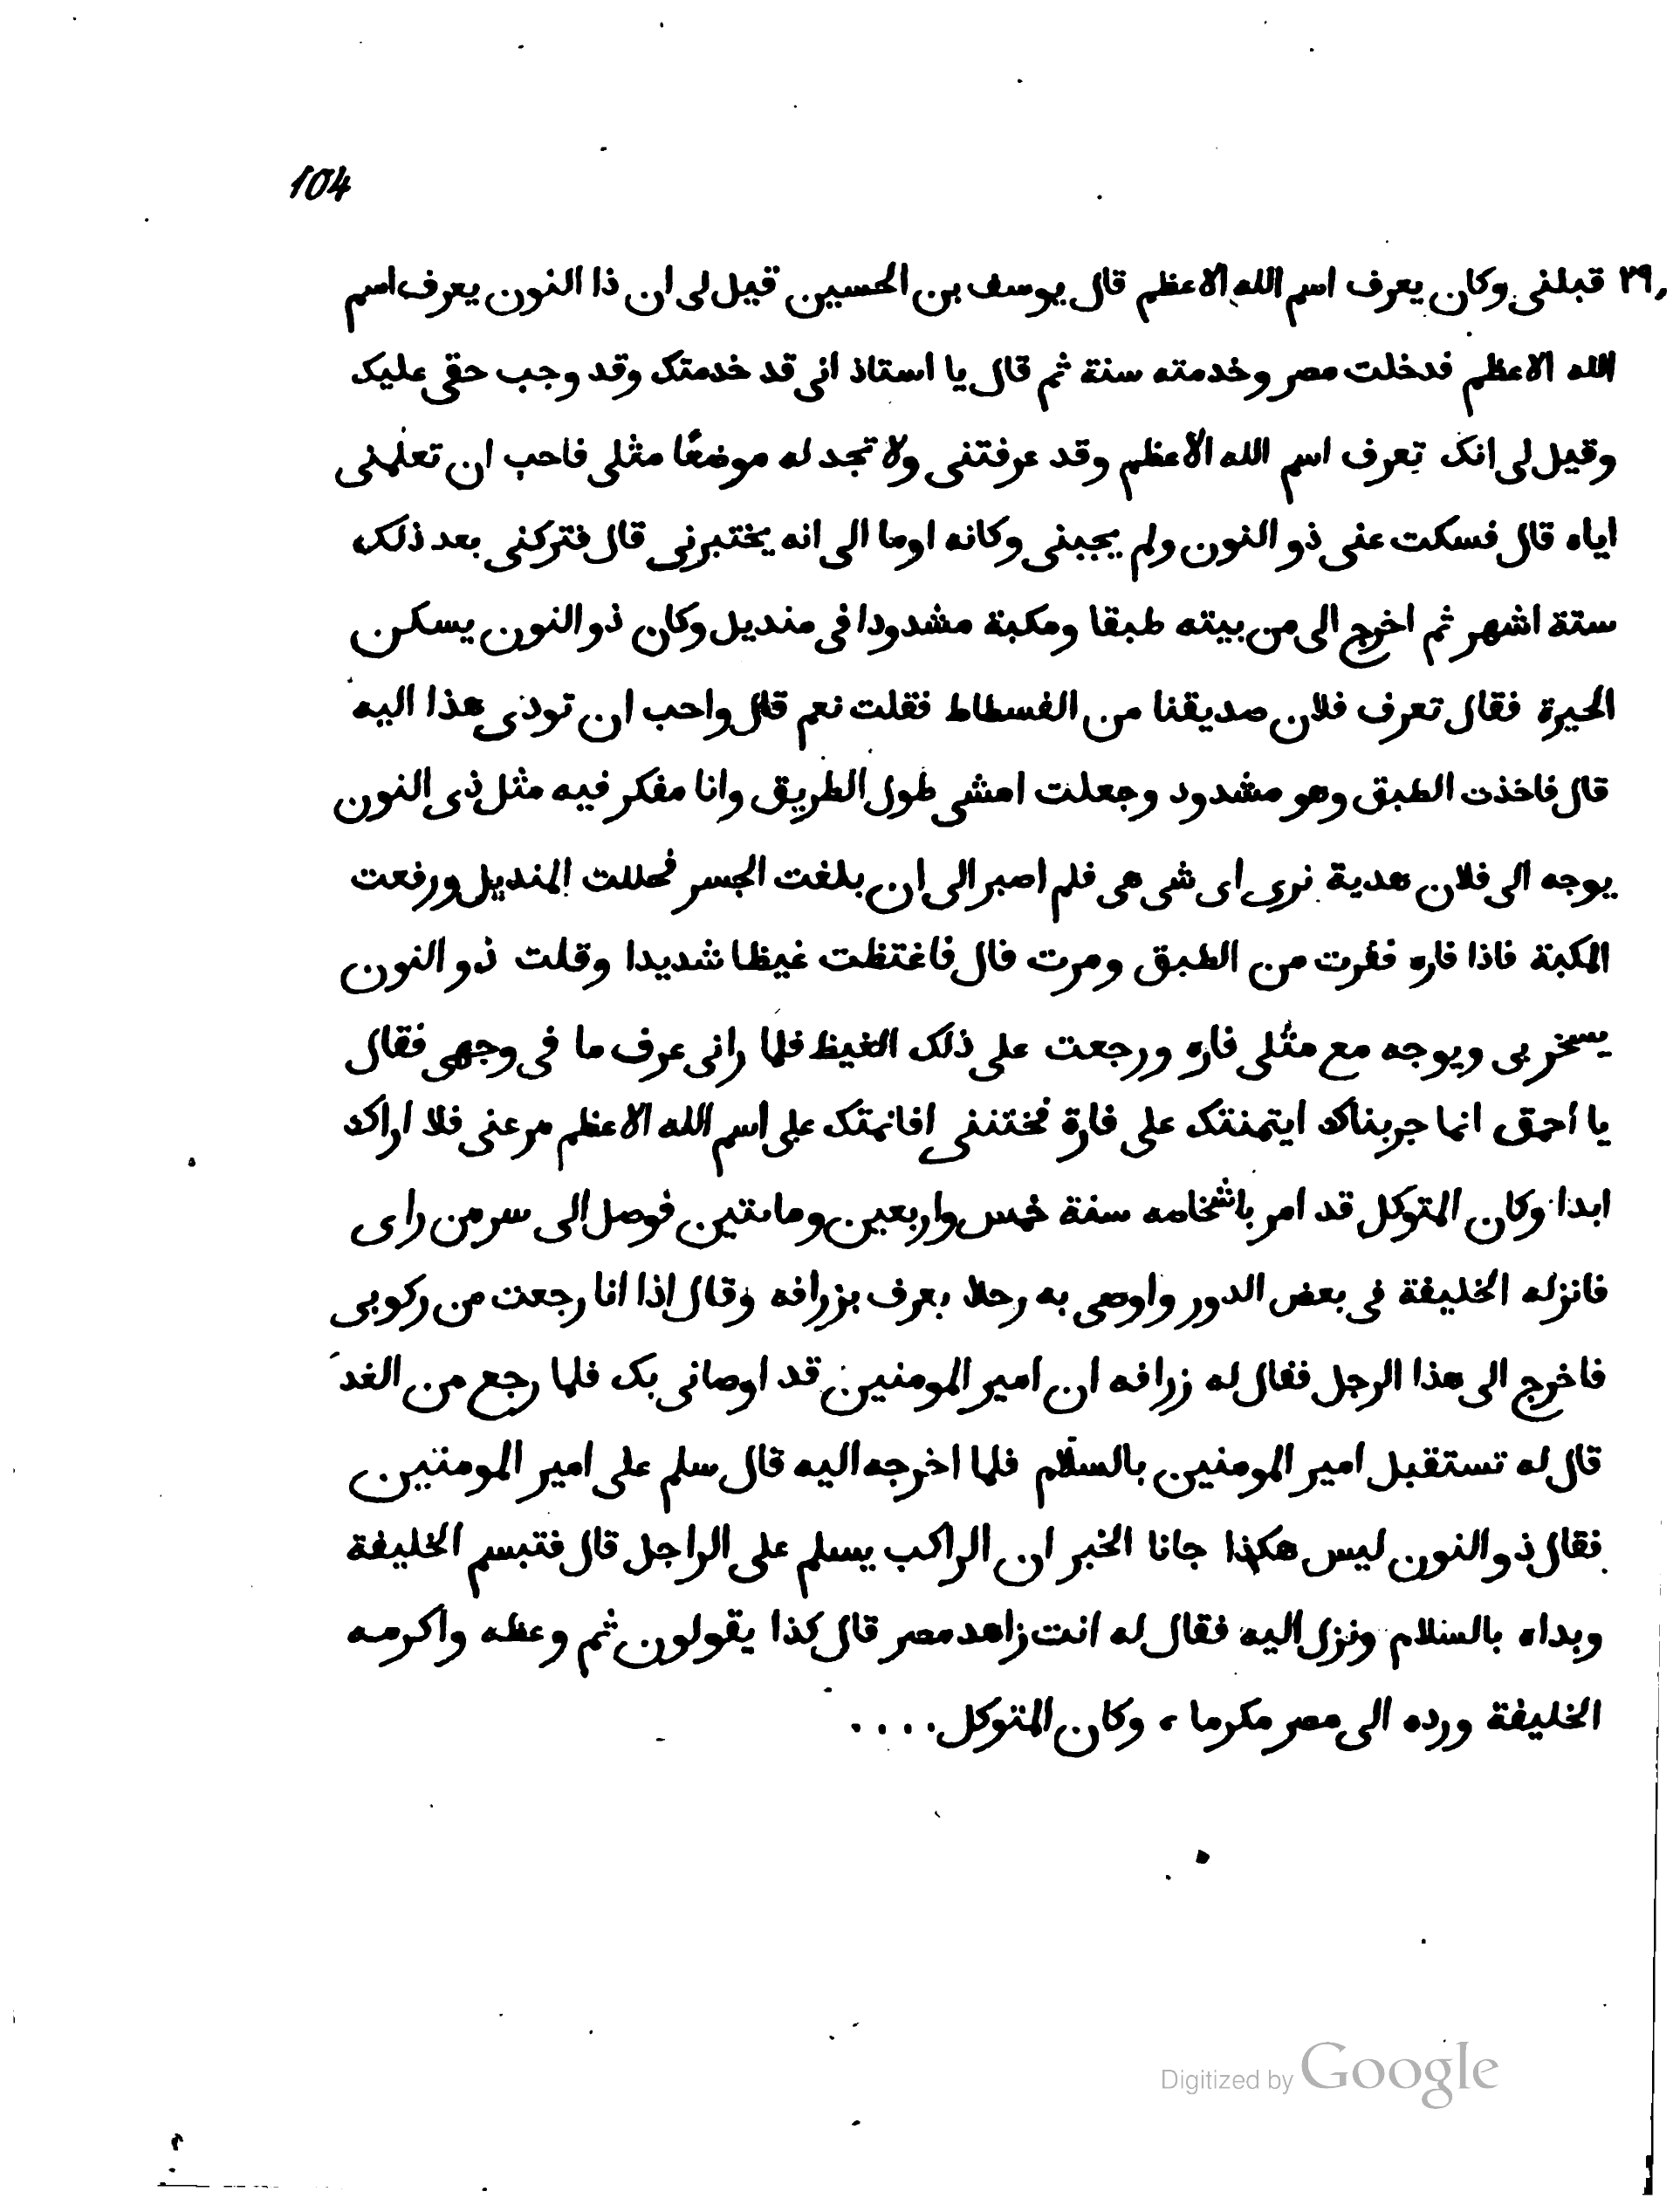 104
٢٩, قبلنى وكان يعرف اسم الله الاعظم قال يوسف بن الحسين قيل لى ان ذا النون يعرف اسم
الله الاعظم فدخلت مصر وخدمته سنة ثم قال يا استاذ انى قد خدمتك وقد وجب حقى عليك
وقيل لى انك تعرف اسم الله الأعظم وقد عرفتنى ولا تجد له موضعًا مثلى فاحب ان تعلمنى
اياه قال فسكت عنى ذو النون ولم يجبنى وكانه اوما الى انه يختبرنى قال فتركنى بعد ذلك
ستة اشهر ثم اخرج الى من بيته طبقا ومكبة مشدودا فى منديل وكان ذو النون يسكن
الحيرة فقال تعرف فلان صديقنا من الفسطاط فقلت نعم قال واحب ان تودى هذا اليه
قال فاخذت الطبق وهو مشدود وجعلت امشى طول الطريق وانا مفكر فيه مثل ذى النون
يوجه الى فلان هدية نرى اى شى هى فلم اصبر الى ان بلغت الجسر فحللت المنديل ورفعت
المكبة فاذا فاره ففرت من الطبق ومرت قال فاغتظت غيظا شديدا وقلت ذو النون
يسخر بى ويوجه مع مثلى فاره ورجعت على ذلك الغيظ فلما رانى عرف ما فى وجهى فقال
يا احمق انما جربناك ايتمنتك على فارة فخنتنى افائمتك على اسم الله الاعظم مر عنى فلا اراك
ابدا وكان المتوكل قد امر باشخاصه سنة خمس واربعين وماىتين فوصل الى سر من راى
فانزله الخليفة فى بعض الدور واوصى به رحلا يعرف بزرافه وقال اذا انا رجعت من ركوبى
فاخرج الى هذا الرجل فقال له زرافه ان امير المومنين قد اوصانى بك فلما رجع من الغد
قال له تستقبل امير المومنين بالسلام فلما اخرجه اليه قال سلم على امير المومنين
فقال ذو النون ليس هكذا جانا الخبر ان الراكب يسلم على الراجل قال فتبسم الخليفة
وبداه بالسلام ونزل اليه فقال له انت زاهد مصر قال كذا يقولون ثم وعظه واكرمه
الخليفة ورده الى مصر مكرما، وكان المتوكل....
Digitized by Google